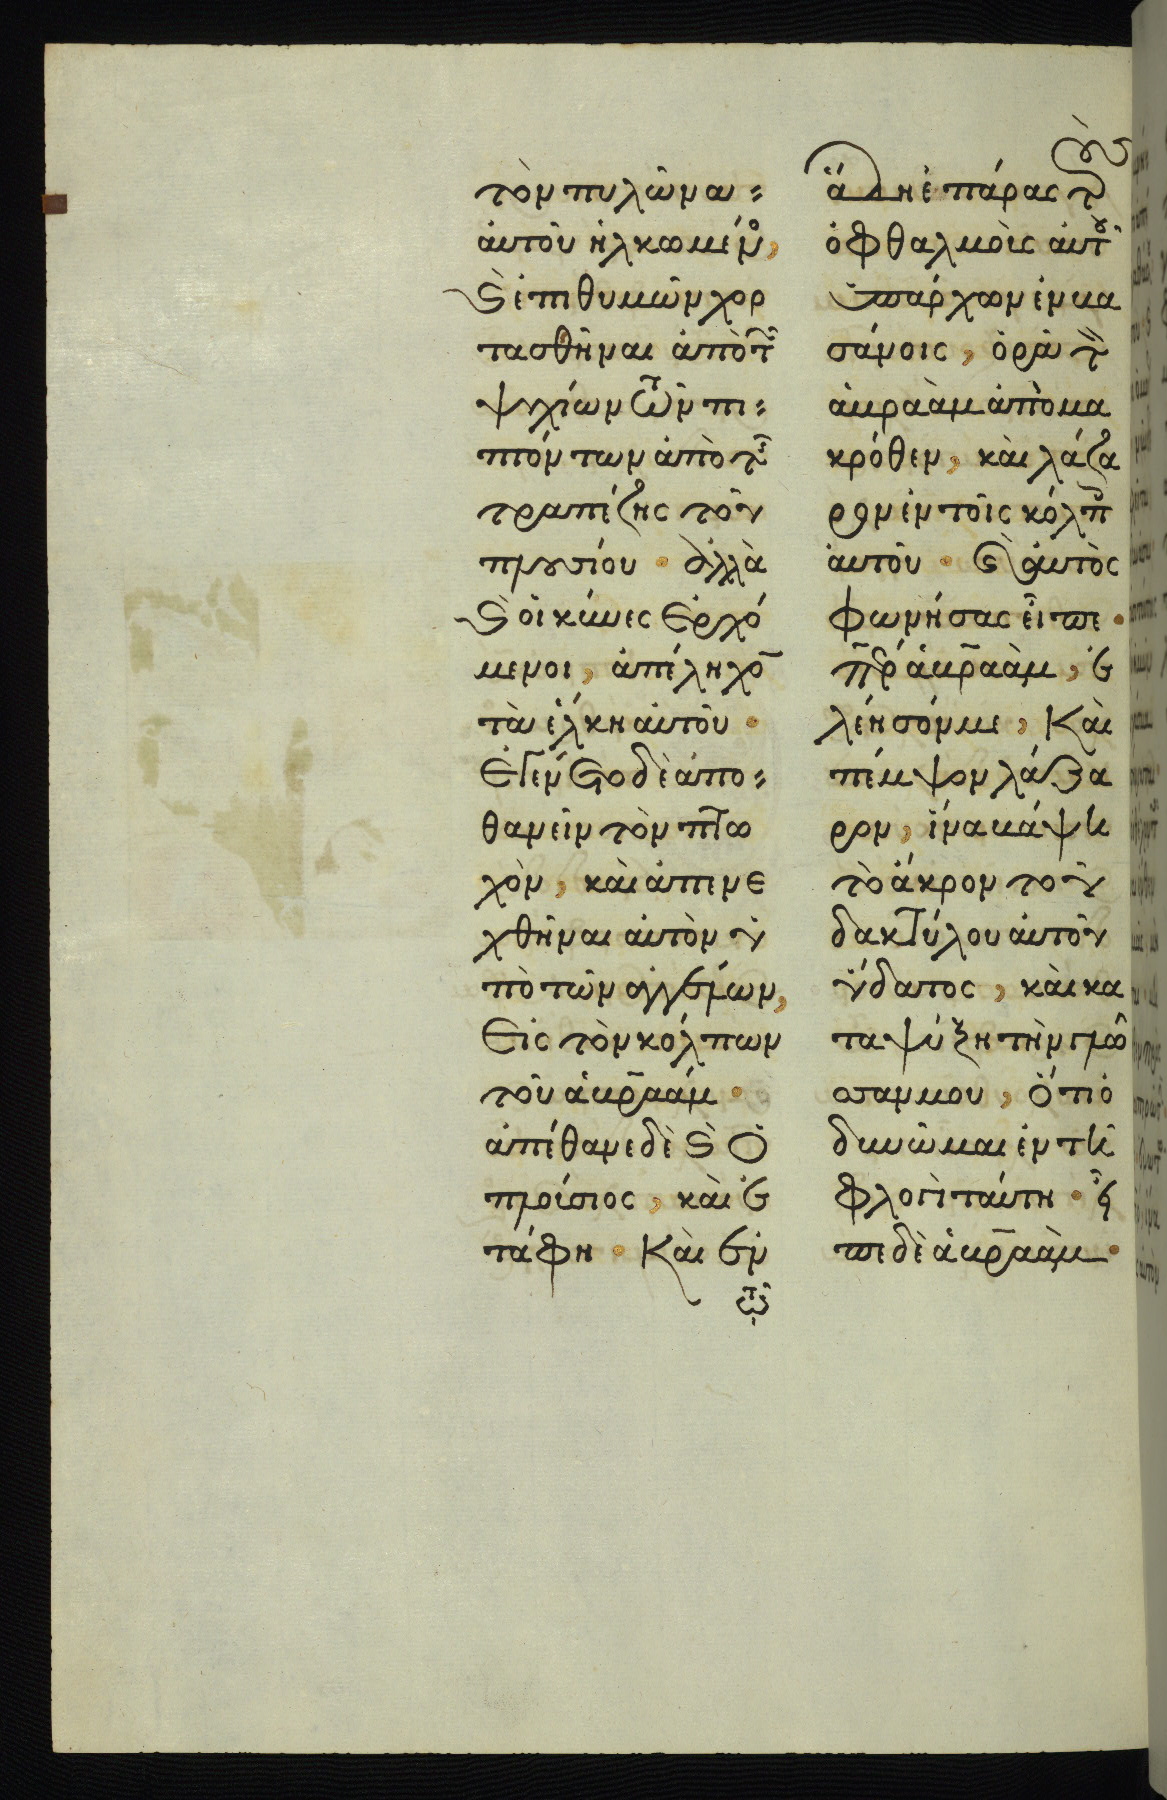 τὸν πυλῶνα
αὐτοῦ ἡλκωμέν(ος),
(καὶ) ἐπιθυμῶν χορ
τασθῆναι ἀπὸ τ(ῶν)
ψιχίων τῶν πι
πτόντων ἀπὸ τ(ῆς)
τραπέζης τοῦ
πλουσίου · ἀλλὰ
(καὶ) οἱ κύνες ἐρχό
μενοι, ἀπέληχο(ν)
τὰ ἕλκη αὐτοῦ ·
Ἐγένετο δὲ ἀπο
θανεῖν τὸν πτω
χὸν, καὶ ἀπενε
χθῆναι αὐτὸν ὑ
πὸ τῶν ἀγγέλων,
εἰς τὸν κόλπων
τοῦ ἀβραάμ ·
ἀπέθανε δὲ (καὶ) ὁ
πλούσιος, καὶ ἐ
τάφη · Καὶ ἐν
τῷ
ἅδῃ ἐπάρας τ(οὺς)
ὀφθαλμοὺς αὐτοῦ
ὑπάρχων ἐν βα
σάνοις, ὁρᾷ τ(ὸν)
ἀβραὰμ ἀπὸ μα
κρόθεν, καὶ λάζα
ρον ἐν τοῖς κόλπ(οις)
αὐτοῦ · (καὶ) αὐτὸς
φωνήσας εἶπε ·
π(άτε)ρ ἀβραὰμ, ἐ
λέησόν με, Καὶ
πέμψον λάζα
ρον, ἵνα βάψῃ
τὸ ἄκρον τοῦ
δακτύλου αὐτοῦ
ὕδατος, καὶ κα
ταψύξῃ τὴν γλῶ
σσαν μου, ὅτι ὀ
δυνῶμαι ἐν τῇ
φλογὶ ταύτῃ · εἶ
πε δὲ ἀβραὰμ ·